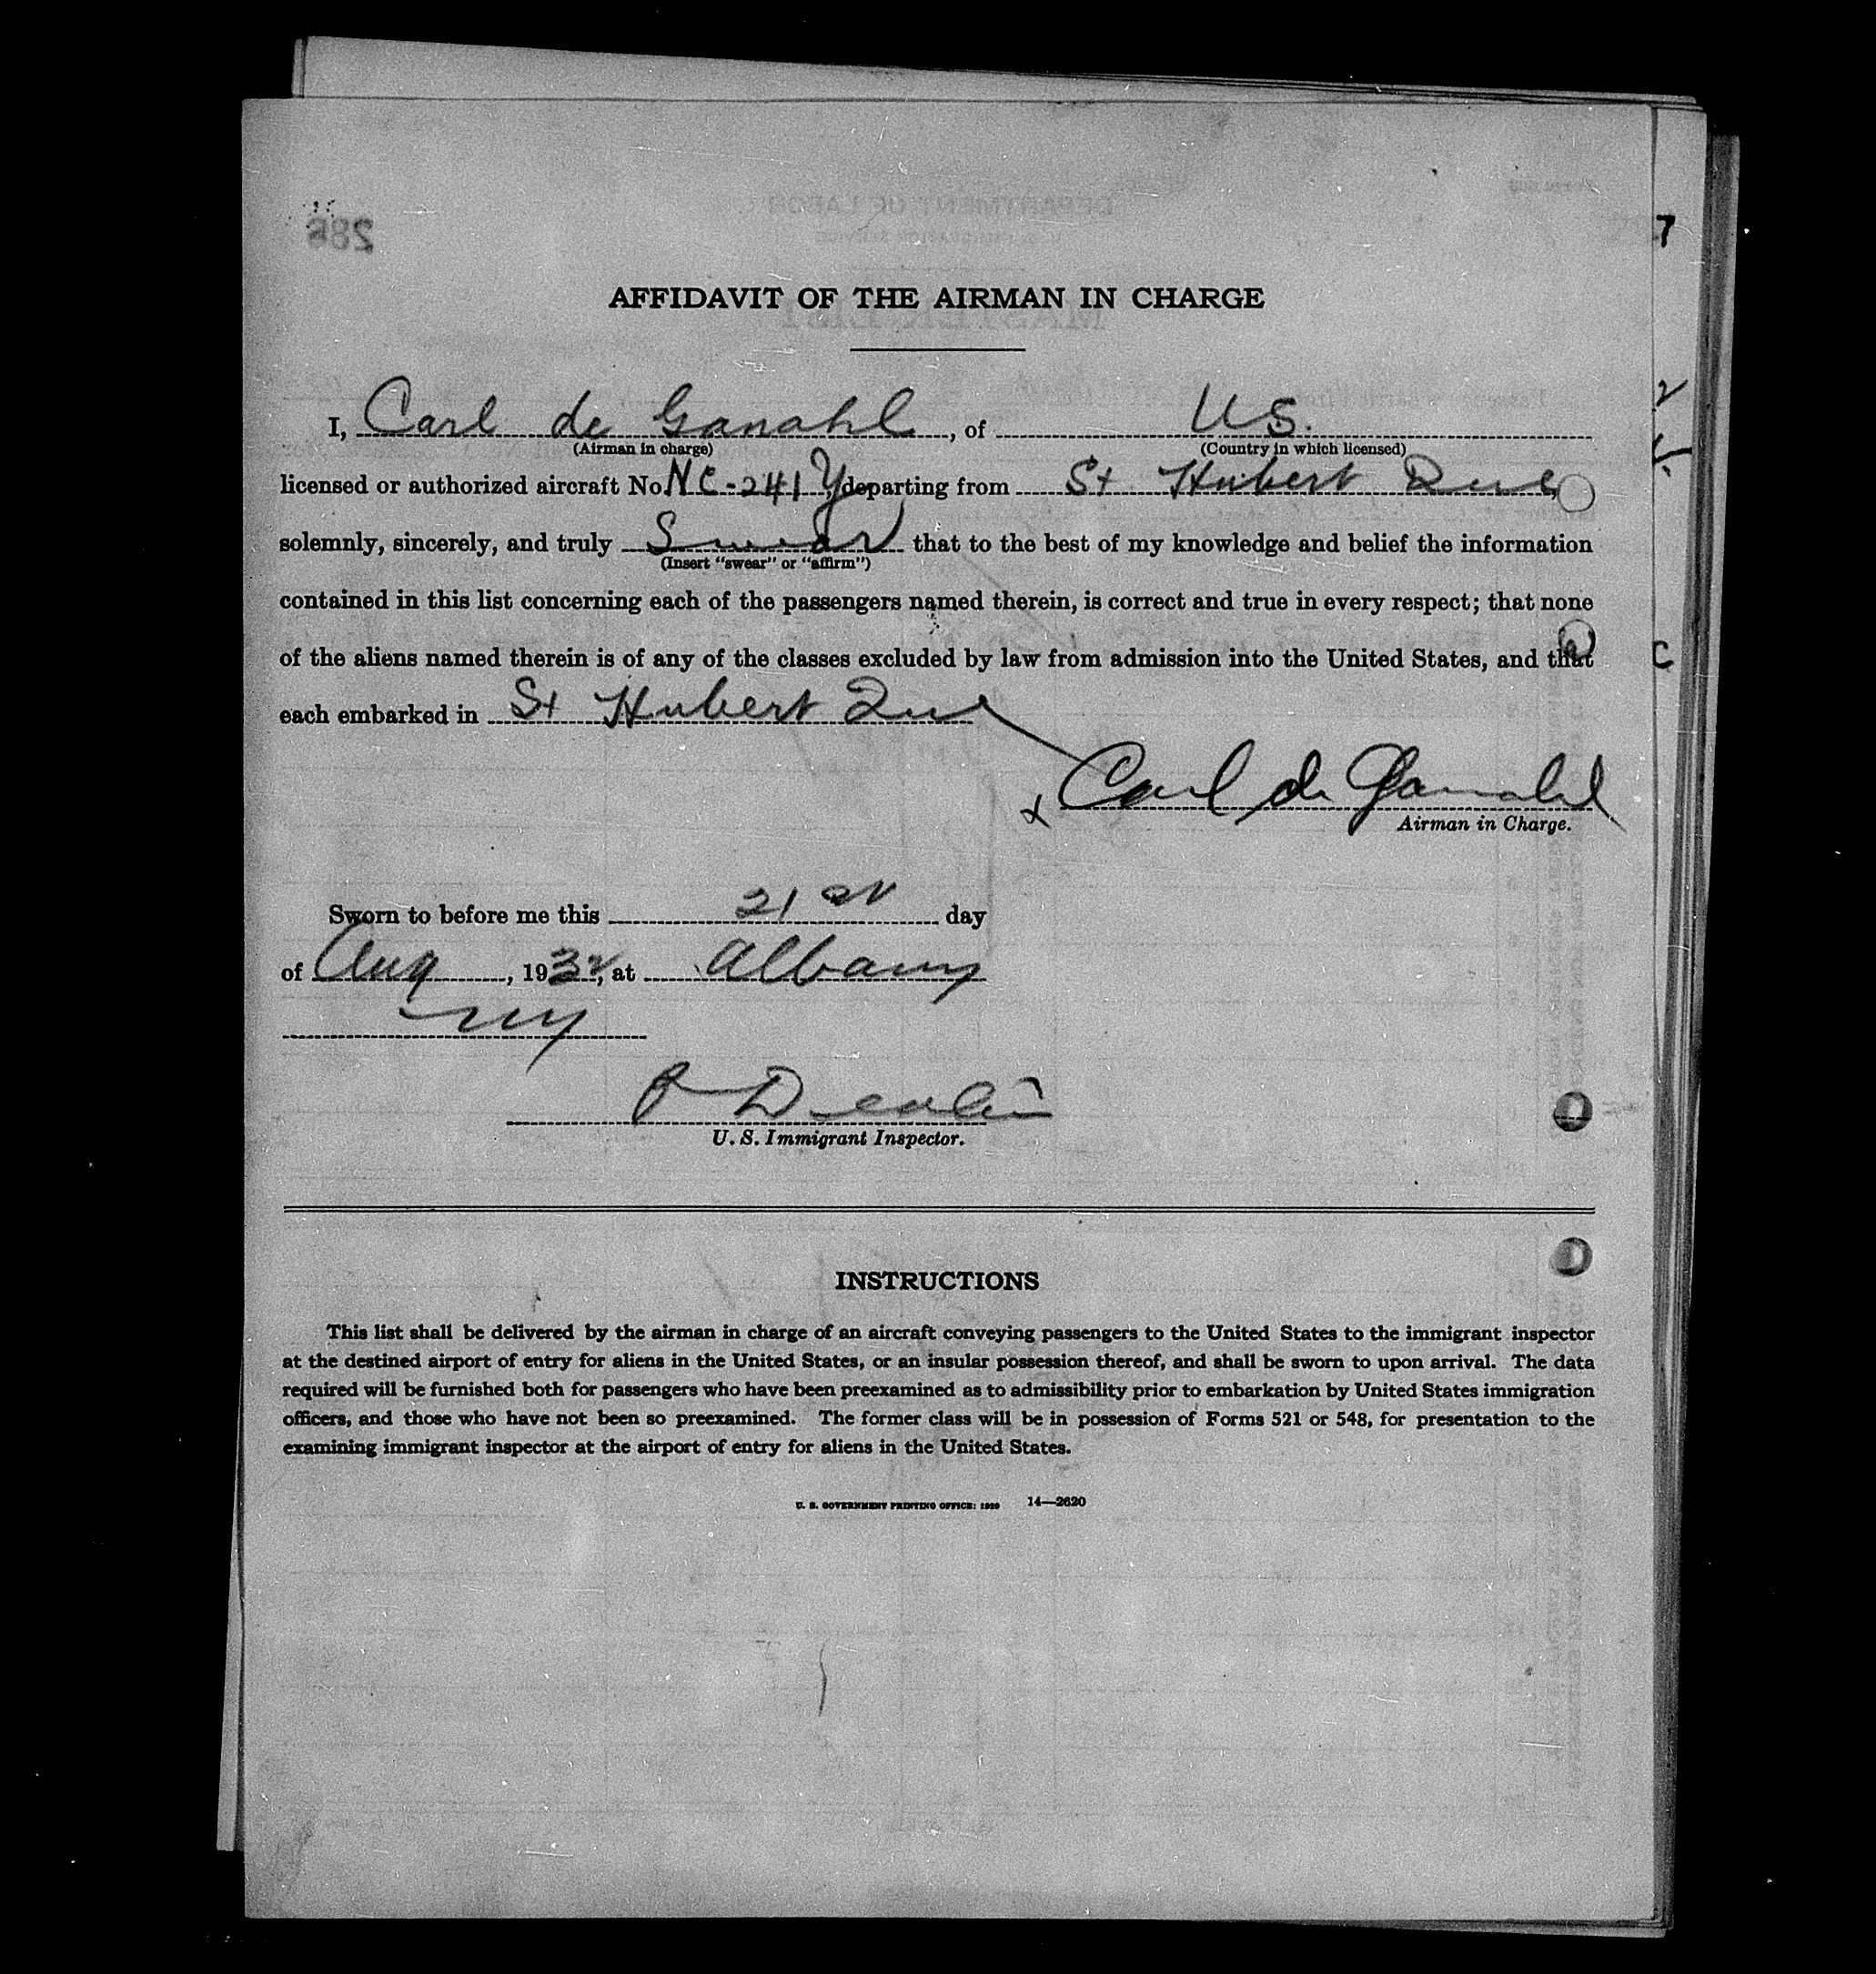 AFFIDAVIT OF THE AIRMAN IN CHARGE
I, Carl de Ganahl, of U S.
(Airman in charge) (Country in which licensed)
licensed or authorized aircraft No. NC-241Y, departing from St Hubert Que,
solemnly, sincerely, and truly Swear that to the best of my knowledge and belief the information
(Insert "swear" or "affirm")
contained in this list concerning each of the passengers named therein, is correct and true in every respect; that none
of the aliens named therein is of any of the classes excluded by law from admission into the United States, and that
each embarked in St Hubert Que
x Carl de Ganahl
Airman in Charge.
Sworn to before me this 21st day
of Aug, 1932, at Albany
NY
U. S. Immigrant Inspector.
INSTRUCTIONS
This list shall be delivered by the airman in charge of an aircraft conveying passengers to the United States to the immigrant inspector
at the destined airport of entry for aliens in the United States, or an insular possession thereof, and shall be sworn to upon arrival. The data
required will be furnished both for passengers who have been preexamined as to admissibility prior to embarkation by United States immigration
officers, and those who have not been so preexamined. The former class will be in possession of Forms 521 or 548, for presentation to the
examining immigrant inspector at the airport of entry for aliens in the United States.
U. S. GOVERNMENT PRINTING OFFICE: 1929 14—2620